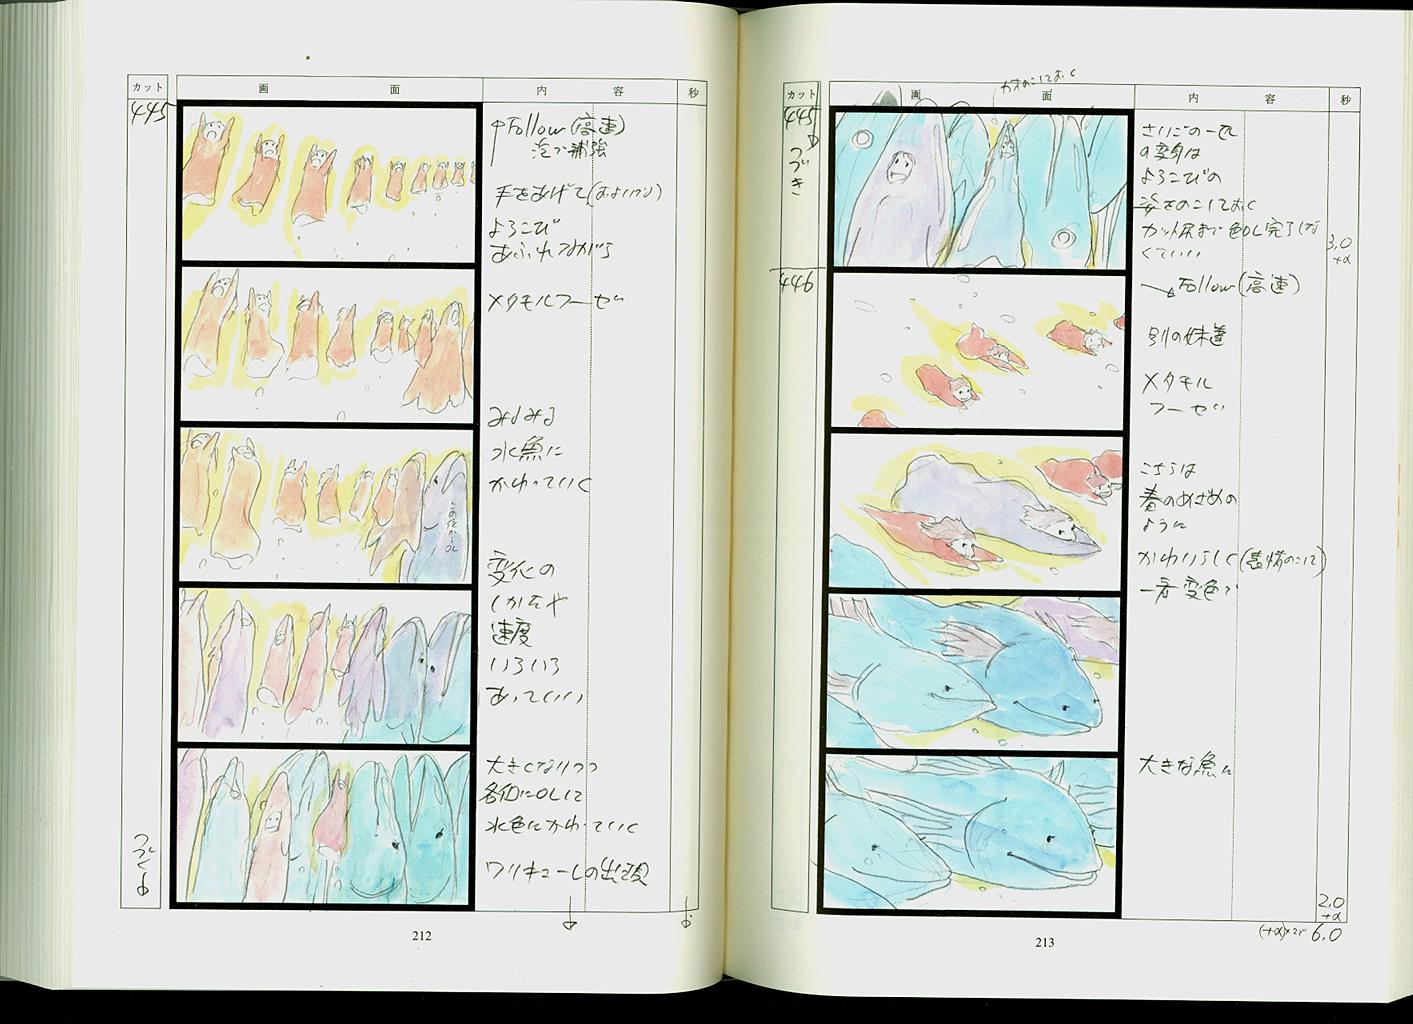 カット
画 面
内 容
秒
445
↑Follow(高速)
泡で補強
手をあげて(およいで)
よろこび
あふれながら
メタモルフーゼ
みるみる
水魚に
かわっていく
変化の
しかたや
速度
いろいろ
あっていい
大きくなりつつ
各個にOLして
水色にかわっていく
ワリキューレの出現
つづく
212
カット
画 面
内 容
秒
445
つづき
さいごの一匹
の変身は
よろこびの
姿をのこしておく
カット尻まで色OL完了しな
くていい
3.0
+α
446
→Follow(高速)
別の妹達
メタモル
フーゼ
こちらは
春のめざめの
ように
かわいらしく(表情のこして)
一君変色で
大きな魚に
2.0
+α
6.0
213